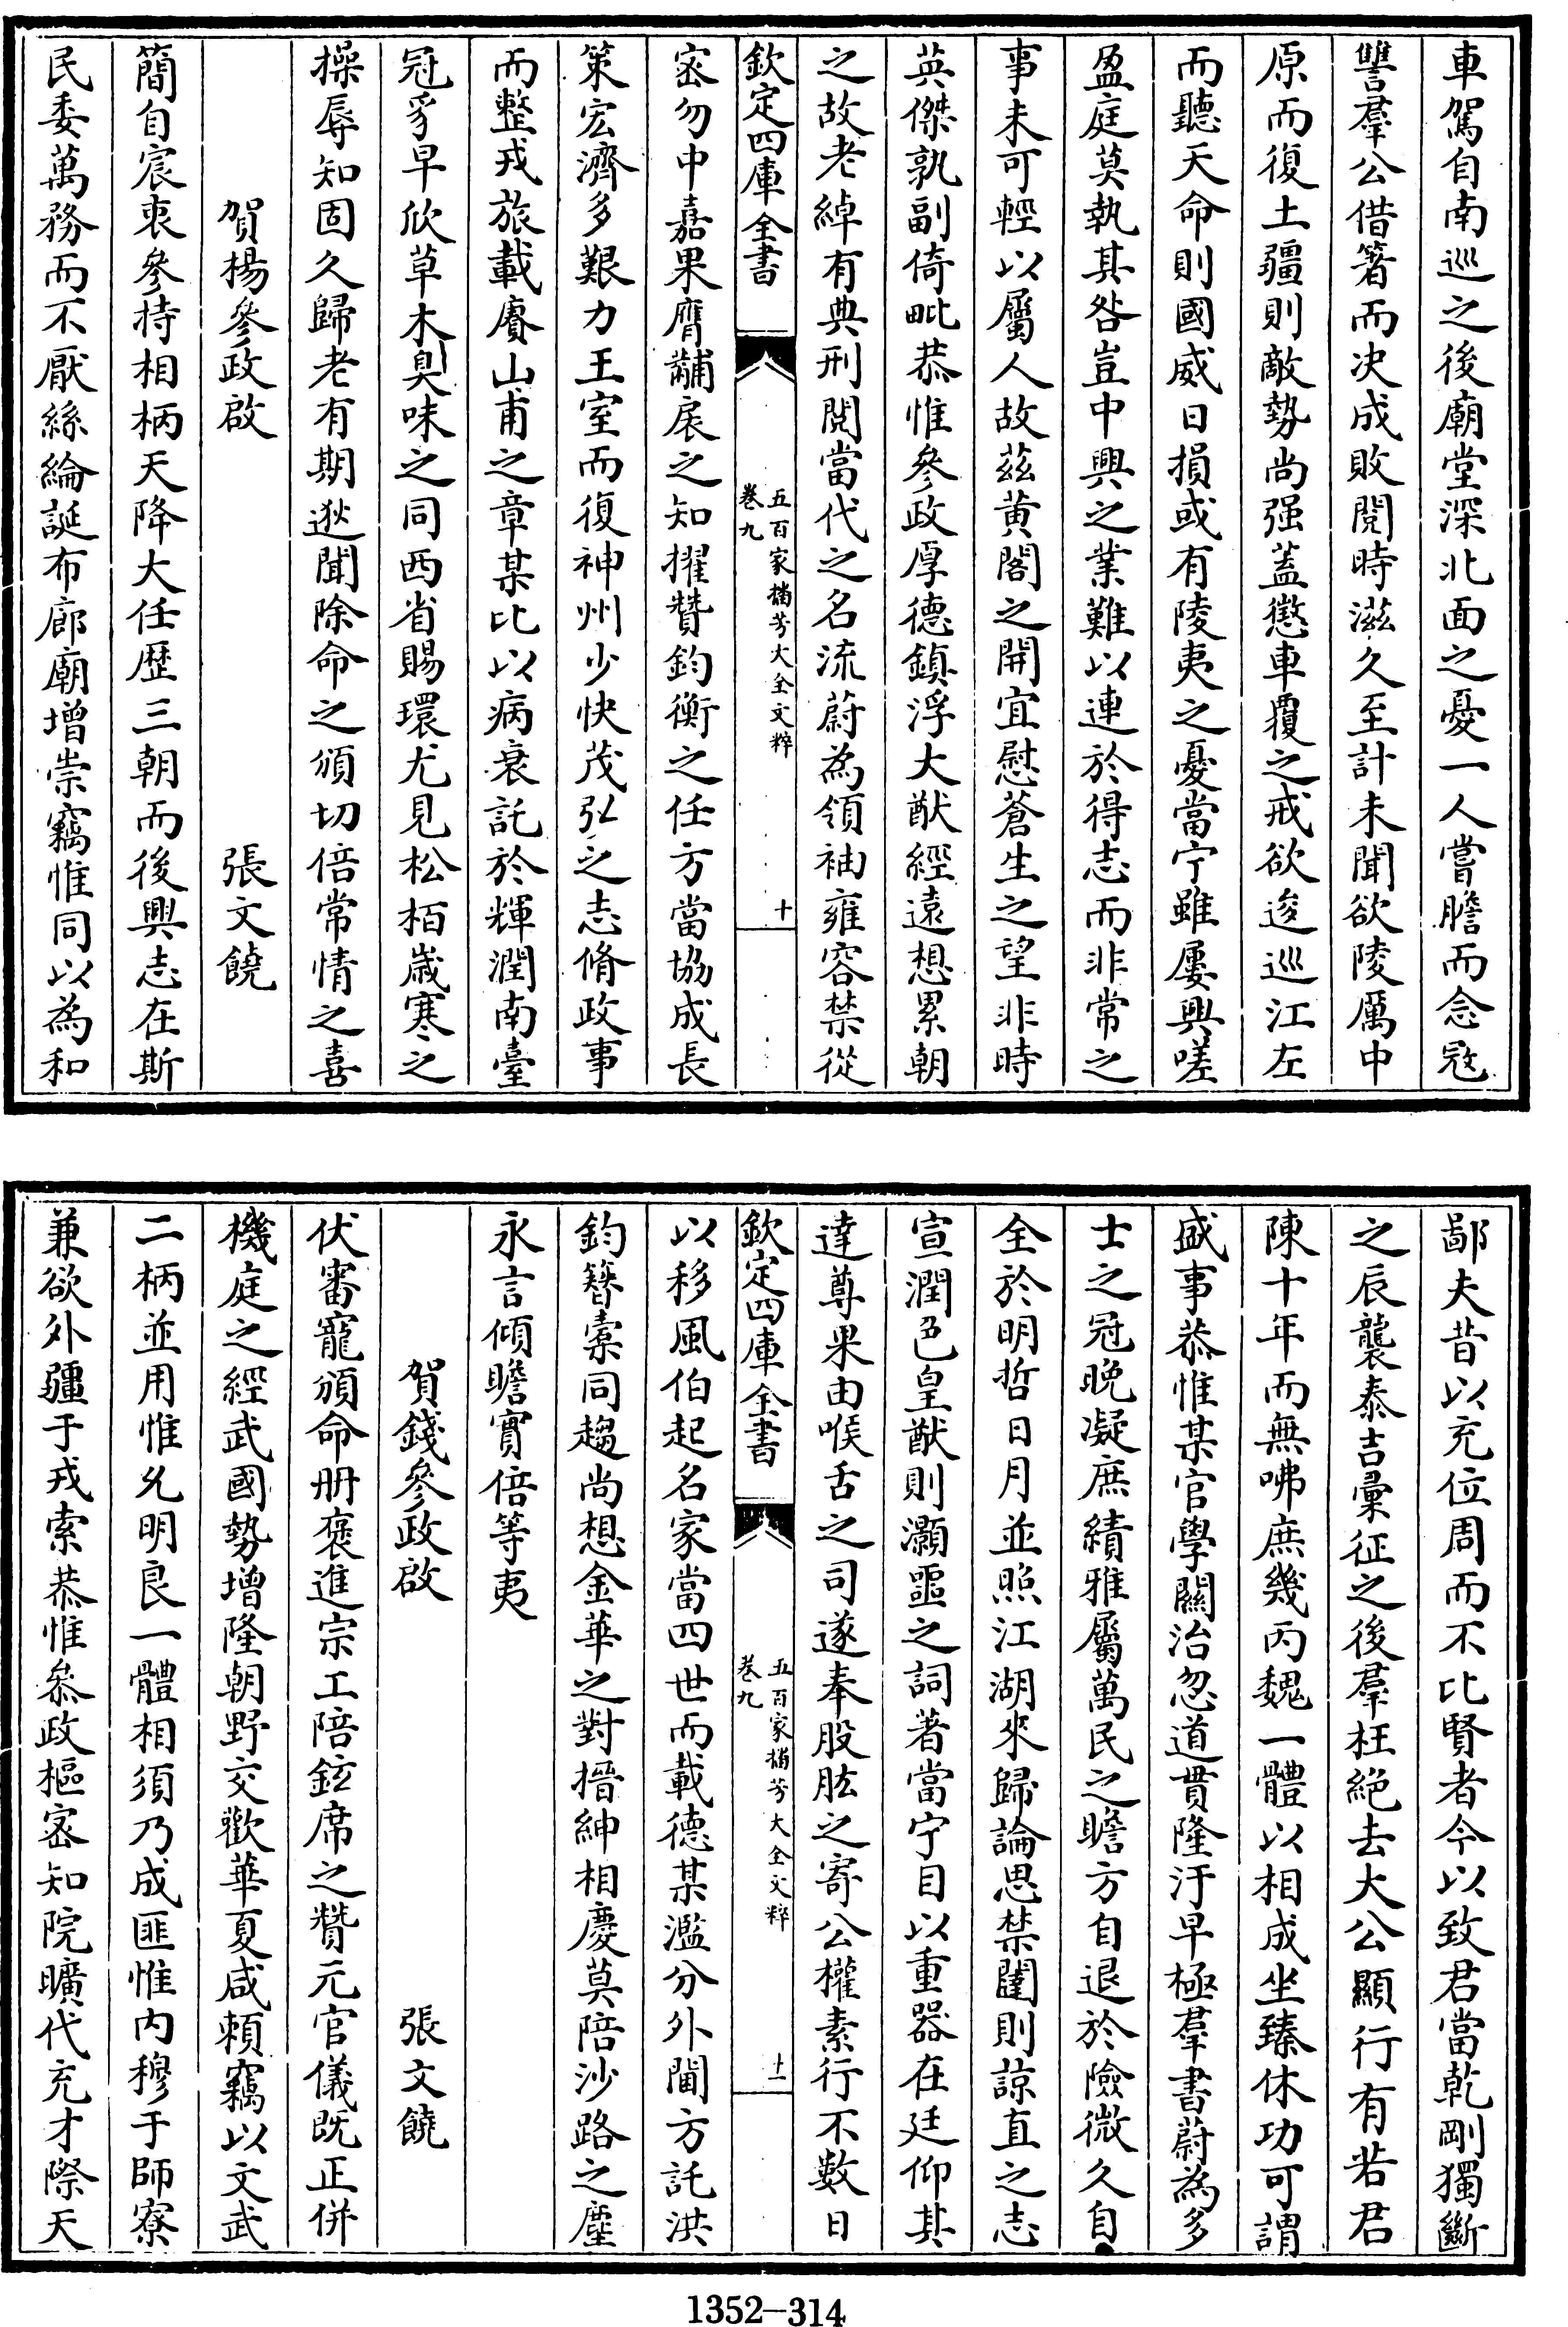 車駕自南巡之後廟堂深北面之憂一人嘗膽而念寇
讐羣公借箸而决成敗閱時滋久至計未聞欲陵厲中
原而復土疆則敵勢尚强蓋懲車覆之戒欲逡巡江左
而聽天命則國威日損或有陵夷之憂當宁雖屢興嗟
盈庭莫執其咎豈中興之業難以連於得志而非常之
事未可輕以屬人故兹黄閣之開宜慰蒼生之望非時
英傑孰副倚毗恭惟參政厚德鎮浮大猷經遠想累朝
之故老綽有典刑閱當代之名流蔚為領袖雍容禁從
欽定四庫全書
五百家播芳大全文粹
卷九
十
密勿中嘉果膺黼扆之知擢贊鈞衡之任方當協成長
策宏濟多艱力王室而復神州少快茂弘之志脩政事
而整戎旅載賡山甫之章某比以病衰託於輝潤南臺
冠豸早欣草木臭味之同西省賜環尤見松栢歲寒之
操辱知固久歸老有期逖聞除命之頒切倍常情之喜
賀楊參政啟 張文饒
簡自宸衷參持相柄天降大任歴三朝而後興志在斯
民委萬務而不厭絲綸誕布廊廟增崇竊惟同以為和
鄙夫昔以充位周而不比賢者今以致君當乾剛獨斷
之辰襲泰吉彚征之後羣枉絶去大公顯行有若君
陳十年而無咈庶幾丙魏一體以相成坐臻休功可謂
盛事恭惟某官學關治忽道貫隆汙早極羣書蔚為多
士之冠晚凝庶績雅屬萬民之瞻方自退於險微久自
全於明哲日月並照江湖來歸論思禁闥則諒直之志
宣潤色皇猷則灝噩之詞著當宁目以重器在廷仰其
達尊果由喉舌之司遂奉股肱之寄公權素行不數日
欽定四庫全書
五百家播芳大全文粹
卷九
十一
以移風伯起名家當四世而載德某濫分外閫方託洪
鈞簪橐同趨尚想金華之對搢紳相慶莫陪沙路之塵
永言傾瞻實倍等夷
賀錢參政啟 張文饒
伏審寵頒命册褒進宗工陪鉉席之贊元官儀既正併
機庭之經武國勢增隆朝野交歡華夏咸賴竊以文武
二柄並用惟允明良一體相須乃成匪惟内穆于師寮
兼欲外疆于戎索恭惟叅政樞密知院曠代充才際天
1352—314